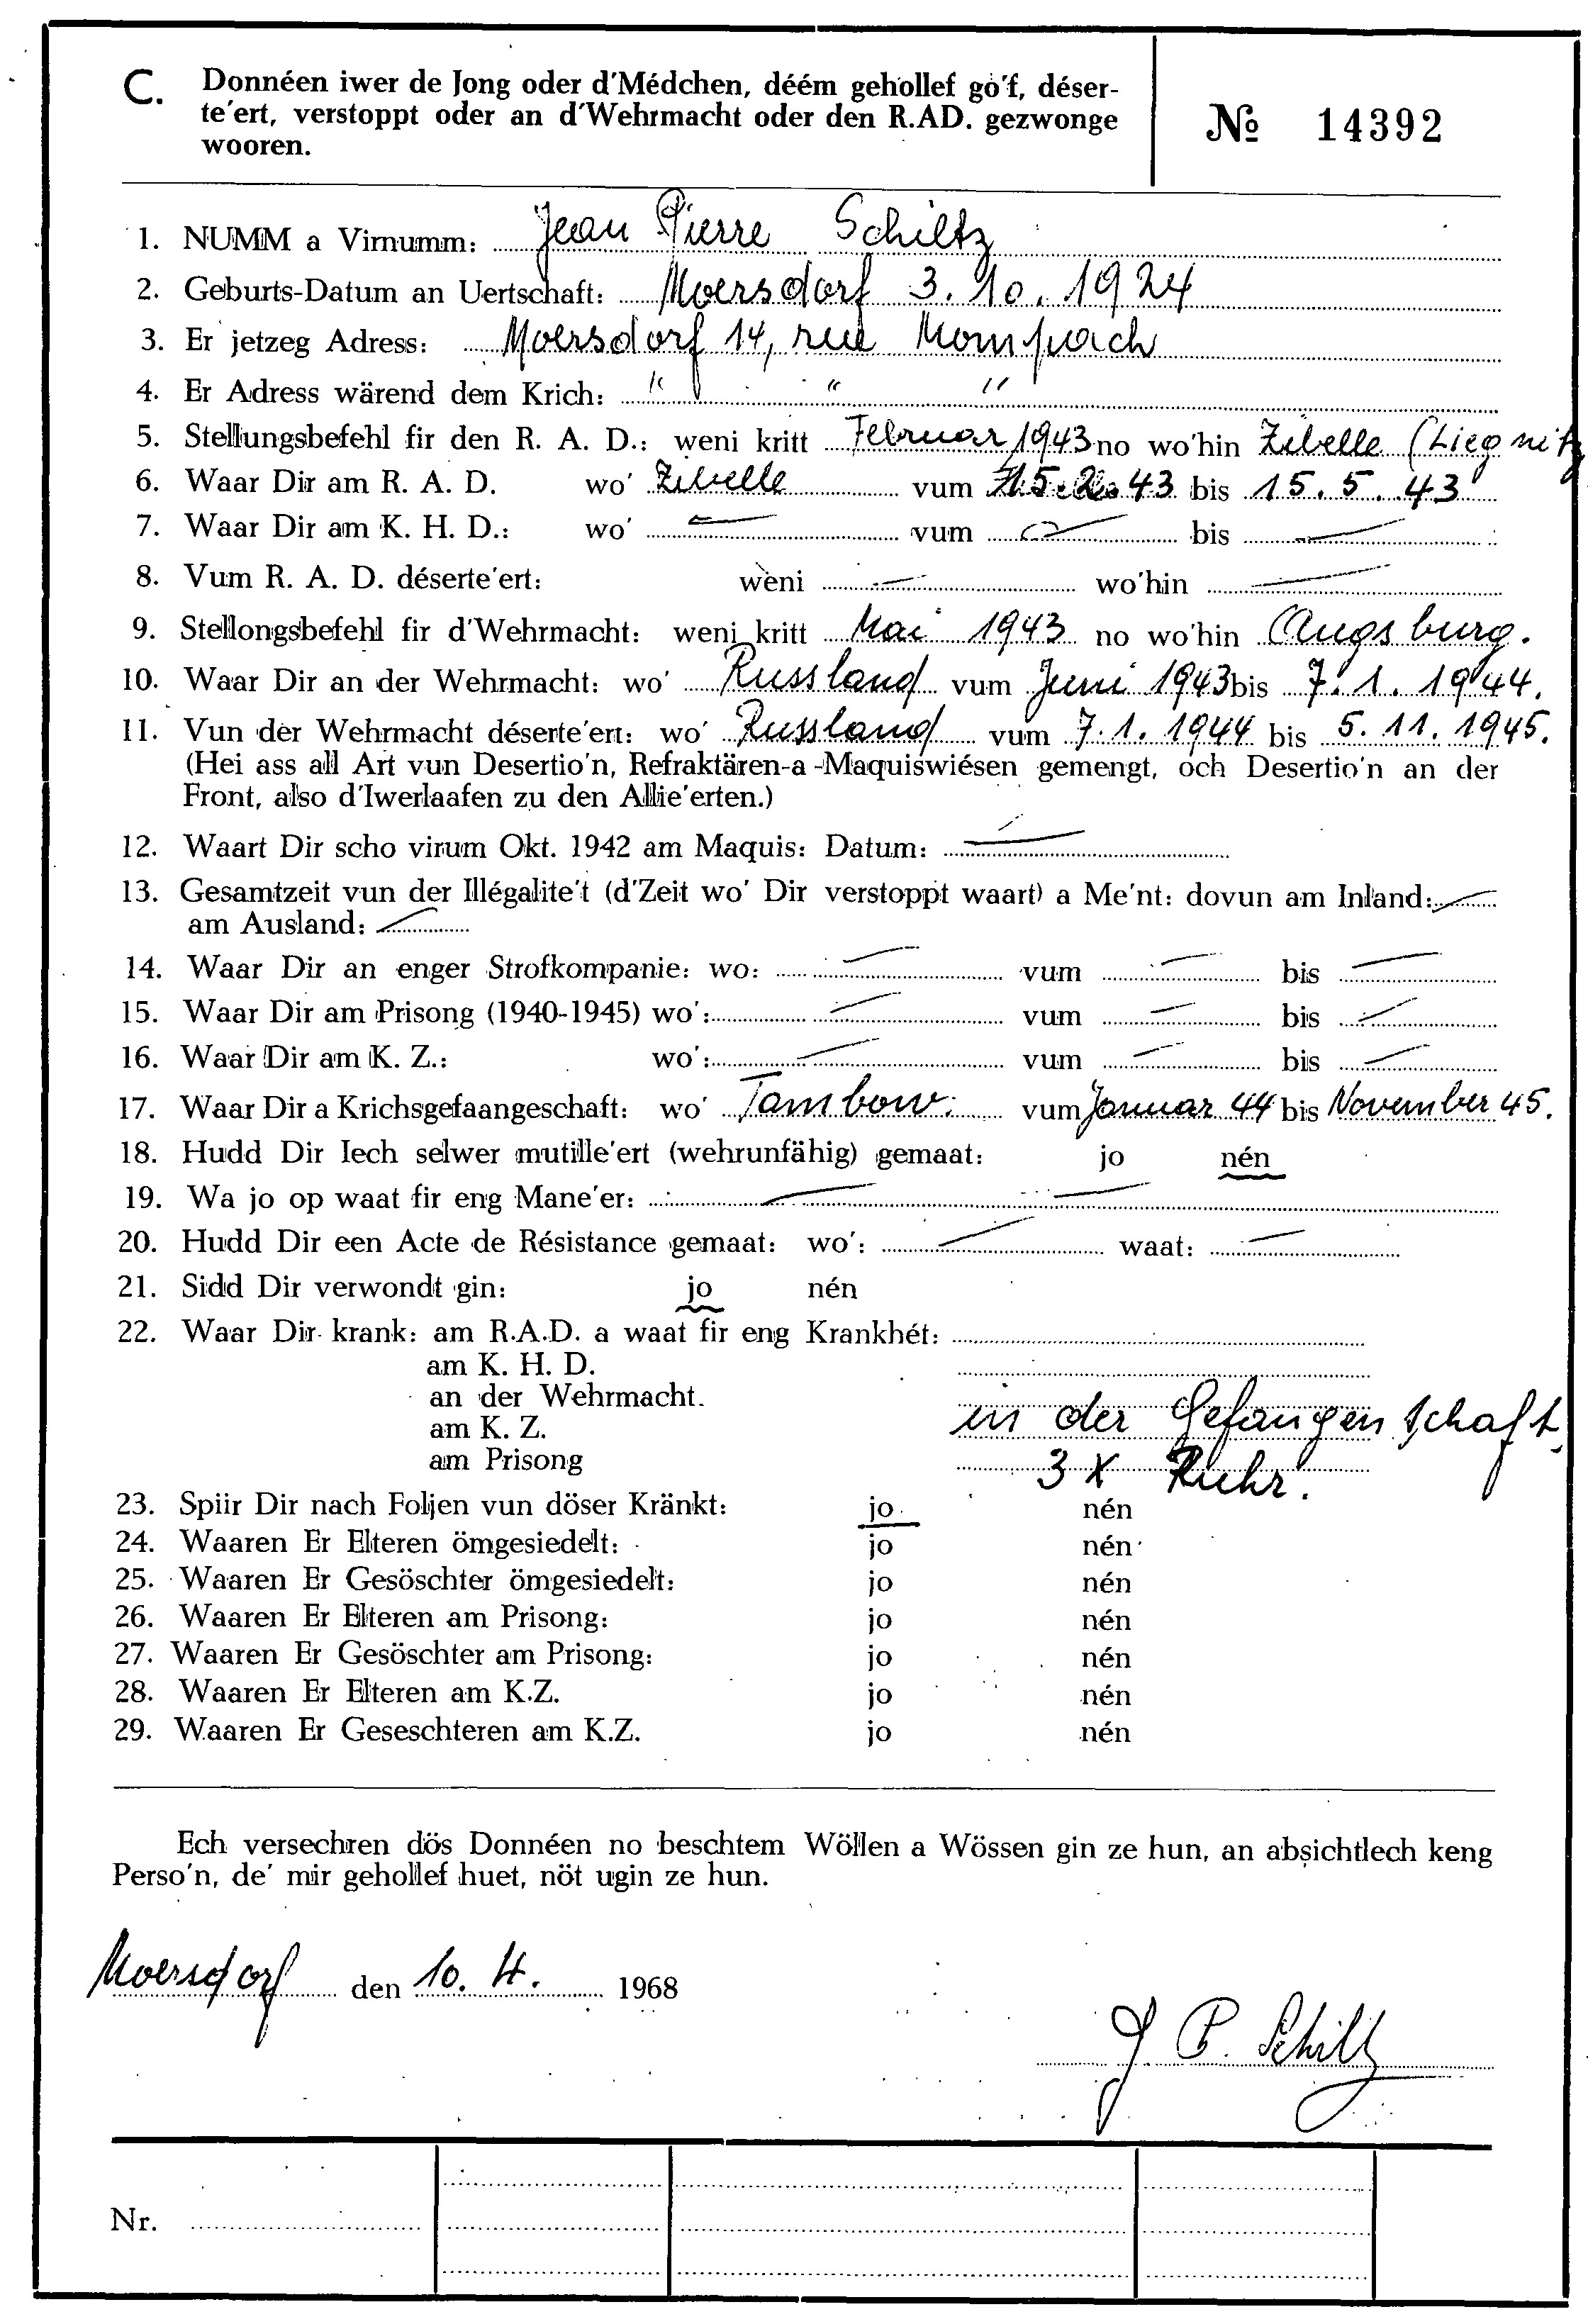 C. Donnéen iwer de Jong oder d'Médchen, déém gehollef go'f, déser-
te'ert, verstoppt oder an d'Wehrmacht oder den R.AD. gezwonge
wooren.
№ 14392
1. NUMM a Virnumm: Jean Pierre Schiltz
2. Geburts-Datum an Uertschaft: Moersdorf 3.10.1924
3. Er jetzeg Adress: Moersdorf 14, rue Mompach
4. Er Adress wärend dem Krich: " " "
5. Stellungsbefehl fir den R. A. D.: weni kritt Februar 1943 no wo'hin Zibelle (Liegnitz
6. Waar Dir am R. A. D. wo' Zibelle vum 15.2.43 bis 15.5.43
7. Waar Dir am K. H. D.: wo' — vum — bis —
8. Vum R. A. D. déserte'ert: weni — wo'hin —
9. Stellongsbefehl fir d'Wehrmacht: weni kritt Mai 1943 no wo'hin Augsburg.
10. Waar Dir an der Wehrmacht: wo' Russland vum Juni 1943 bis 7.1.1944.
11. Vun der Wehrmacht déserte'ert: wo' Russland vum 7.1.1944 bis 5.11.1945.
(Hei ass all Art vun Desertio'n, Refraktären-a-Maquiswiésen gemengt, och Desertio'n an der
Front, also d'Iwerlaafen zu den Allie'erten.)
12. Waart Dir scho virum Okt. 1942 am Maquis: Datum: —
13. Gesamtzeit vun der Illégalite't (d'Zeit wo' Dir verstoppt waart) a Me'nt: dovun am Inland: —
am Ausland: —
14. Waar Dir an enger Strofkompanie: wo: — vum — bis —
15. Waar Dir am Prisong (1940-1945) wo': — vum — bis —
16. Waar Dir am K. Z.: wo': — vum — bis —
17. Waar Dir a Krichsgefaangeschaft: wo' Tambow. vum Januar 44 bis November 45.
18. Hudd Dir Iech selwer mutille'ert (wehrunfähig) gemaat: jo nén
19. Wa jo op waat fir eng Mane'er: — —
20. Hudd Dir een Acte de Résistance gemaat: wo': — waat: —
21. Sidd Dir verwondt gin: jo nén
22. Waar Dir krank: am R.A.D. a waat fir eng Krankhét:
am K. H. D.
an der Wehrmacht.
am K. Z. in der Gefangenschaft,
am Prisong 3 X Ruhr.
23. Spiir Dir nach Foljen vun döser Kränkt: jo nén
24. Waaren Er Elteren ömgesiedelt: jo nén
25. Waaren Er Gesöschter ömgesiedelt: jo nén
26. Waaren Er Elteren am Prisong: jo nén
27. Waaren Er Gesöschter am Prisong: jo nén
28. Waaren Er Elteren am K.Z. jo nén
29. Waaren Er Geseschteren am K.Z. jo nén
Ech versechren dös Donnéen no beschtem Wöllen a Wössen gin ze hun, an absichtlech keng
Perso'n, de' mir gehollef huet, nöt ugin ze hun.
Moersdorf den 10.4. 1968
J. P. Schiltz
Nr.